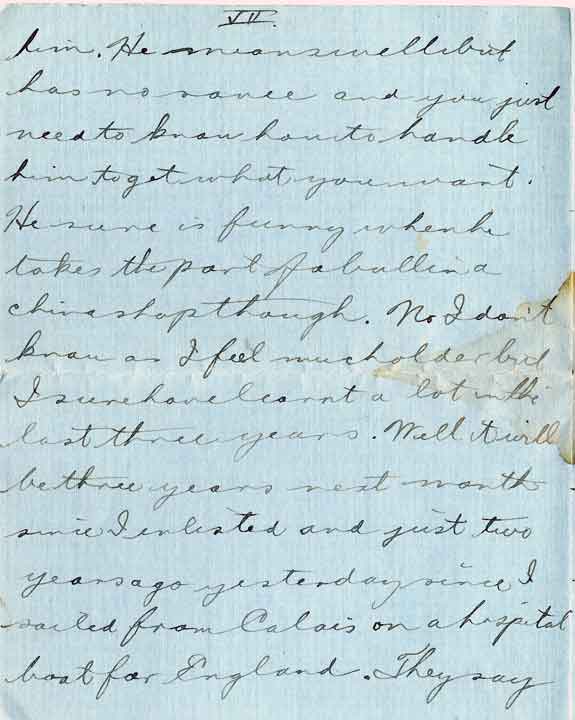 VII.
him. He means well but
has no savee and you just
need to know how to handle
him to get what you want.
He sure is funny when he
takes the part of a bull in a
china shop though. No I don't
know as I feel much older but
I sure have learnt a lot in the
last three years. Well it will
be three years next month
since I enlisted and just two
years ago yesterday since I
sailed from Calais on a hospital
boat for England. They say